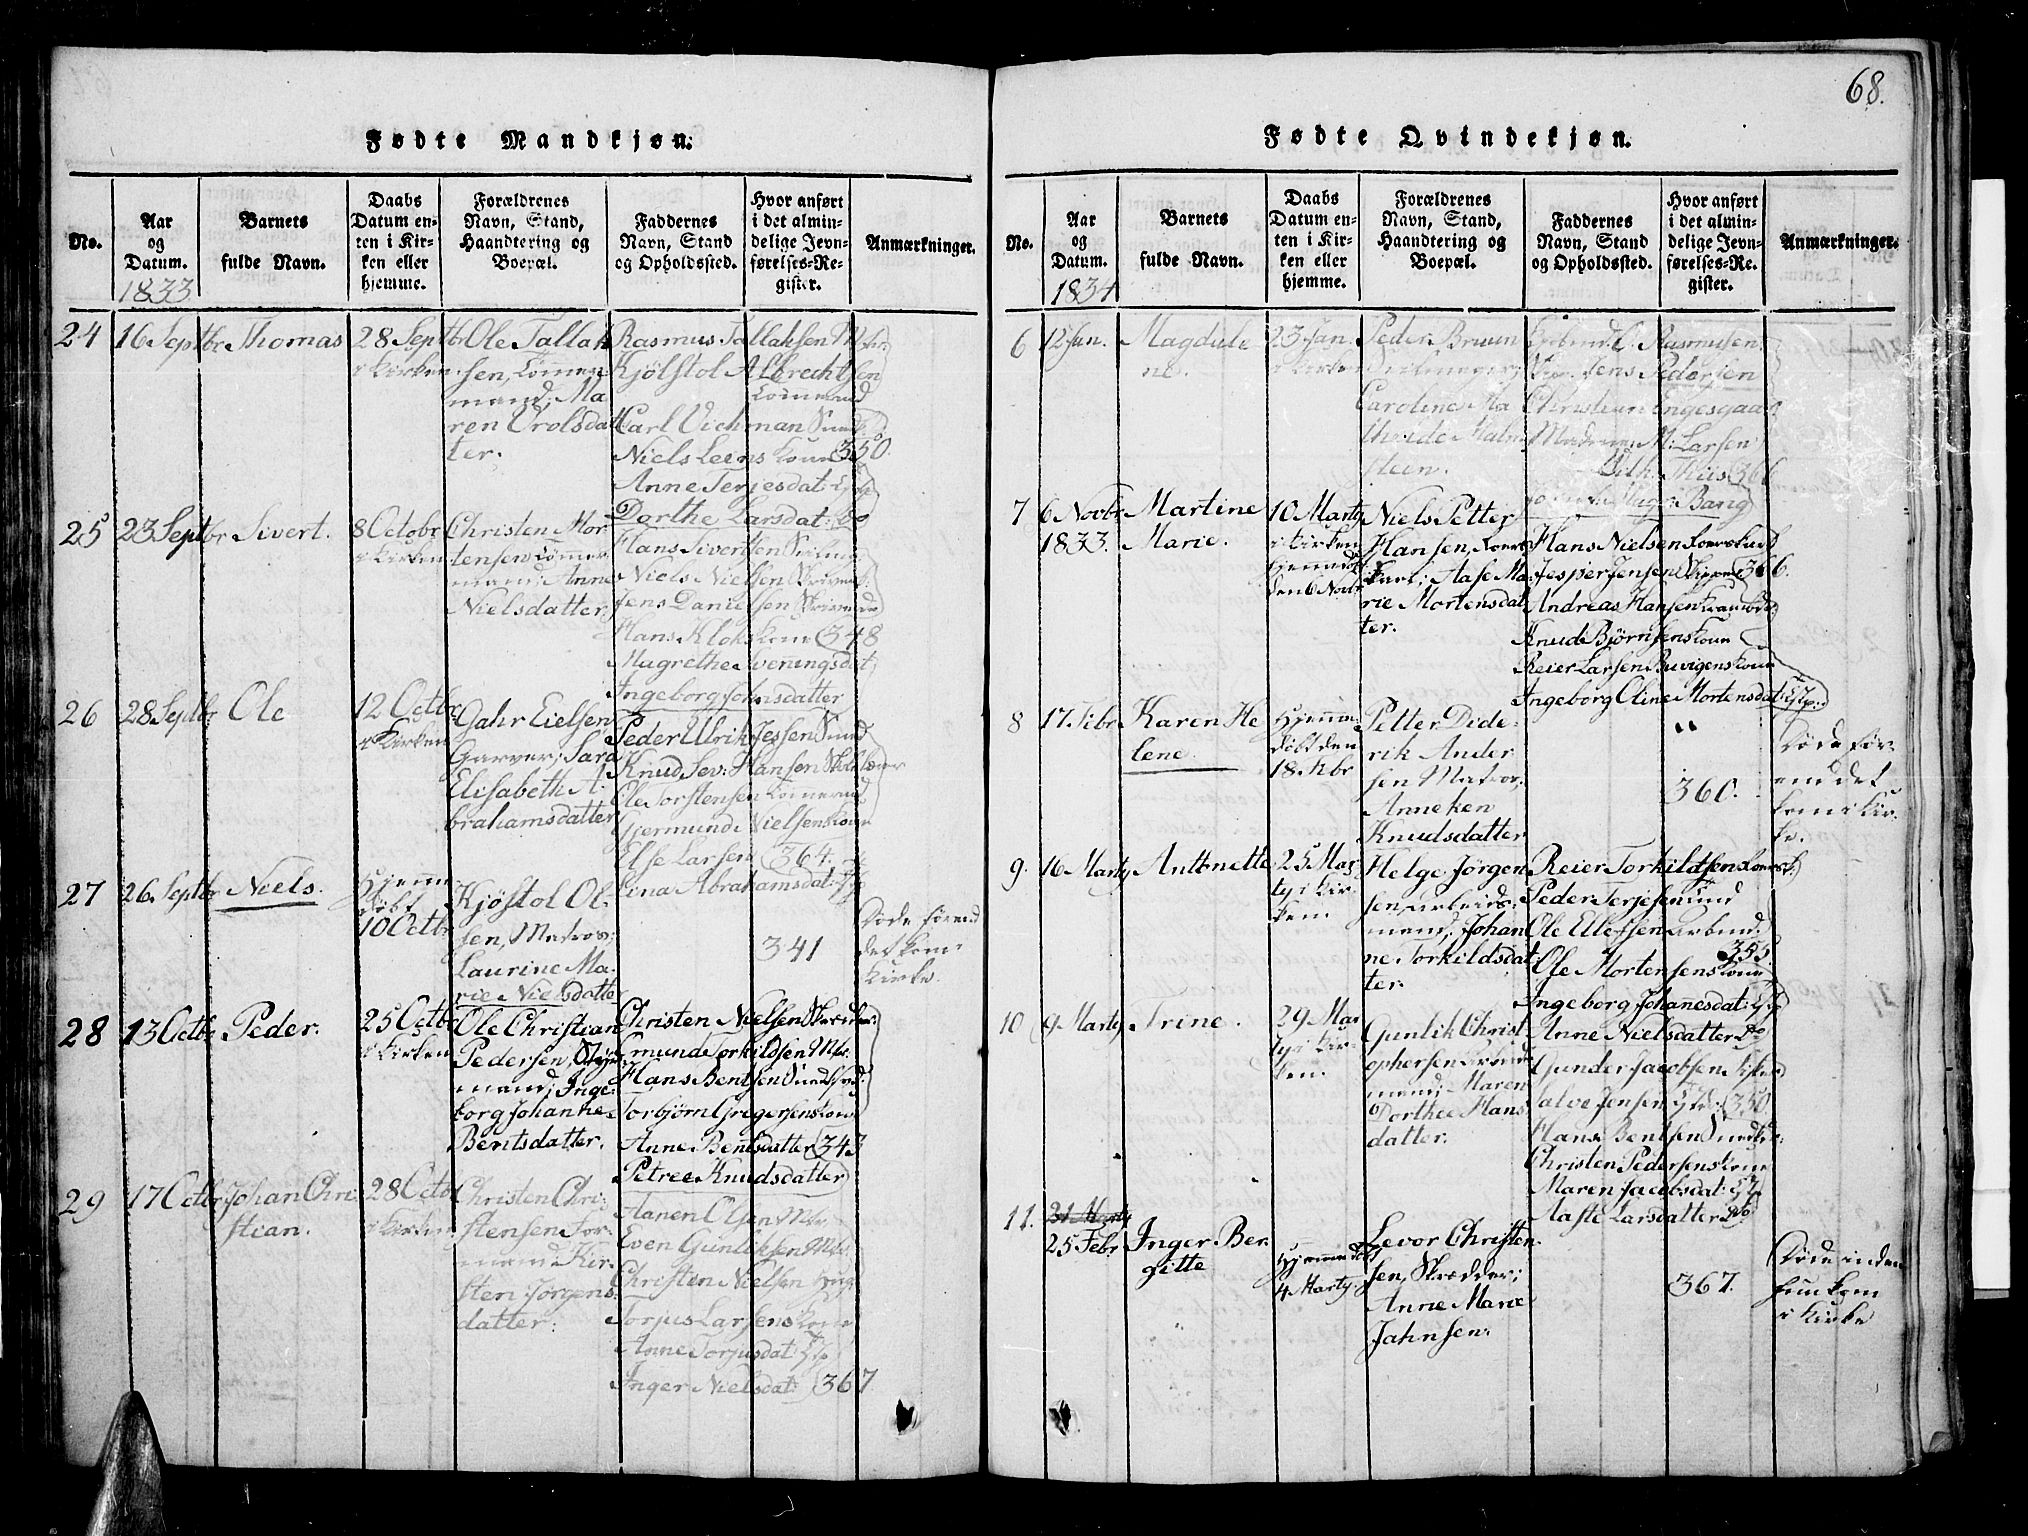 68.
Fødte Mandkjøn.
No.
Aar
og
Datum.
1833
Barnets
fulde Navn.
Daabs
Datum en-
ten i Kir-
ken eller
hjemme.
Forældrenes
Navn, Stand,
Haandtering og
Boepæl.
Faddernes
Navn, Stand
og Opholdssted.
Hvor anført
i det almin-
delige Jevn-
førelses-Re-
gister.
Anmærkninger.
24
16 Septbr
Thomas
28 Septbr
i Kirken
Ole Tallak
sen,
mand; Ma
ren Orolsdat
ter.
Rasmus Tallaksen
Kjölstol Albrechtsen
Carl Vichman
Niels Leens Kone 350.
Anne Terjesdat:
Dorthe Larsdat: Do
25
23 Septbr
Sivert.
8 Octobr
i Kirken
Christen Mor
tensen
mand; Anne
Nielsdatter.
Hans Sivertsen
Niels Nielsen
Jens Danielsen
Hans Kloks Kone 348
Magrethe Sveningsdat
Ingeborg Johnsdatter
26
28 Septbr
Ole
12 Octbr
i Kirken
Gahr Eielsen
Garver; Sara
Elisabeth A-
brahamsdatter
Peder Ulrik Jessen
Knud Sev: Hansen
Ole Torstensen
Gjermund Nielsens Kone
Else Larsen 364.
Lina Abrahamsdat:
27
26 Septbr
Niels.
Hjemme
döbt
10 Octbr
Kjöstol Ol-
sen, Matros;
Laurine Ma-
rie Nielsdatter
341
Döde förend
det kom i
Kirke.
28
13 Octbr
Peder.
25 Octbr
i Kirken
Ole Christian
Pedersen,
mand; Inge-
borg Johanne
Bentsdatter.
Christen Nielsen Skræder
Gmund Torkildsen
Hans Bentsen
Torbjörn Gregersens Kone
Anne Bentsdatter 343
Petree Knudsdatter
29
17 Octbr
Johan Chri
stian.
28 Octbr
i Kirken
Christen Chri-
stensen
mand Kir-
sten Jörgens-
datter.
Aanen Olsen
Even Gunliksen
Christen Nielsen
Torjus Larsens Kone
Anne Torjusdat:
Inger Nielsdat: 367
Fødte Qvindekjøn.
No.
Aar
og
Datum.
1834
Barnets
fulde Navn.
Daabs
Datum en-
ten i Kir-
ken eller
hjemme.
Forældrenes
Navn, Stand,
Haandtering og
Boepæl.
Faddernes
Navn, Stand
og Opholdssted.
Hvor anført
i det almin-
delige Jevn-
førelses-Re-
gister.
Anmærkninger.
6
12 Jan.
Magdale
ne.
23 Jan.
i Kirken
Peder Bruun
Caroline Ma
thilde Halm
steen.
Rasmusen
Jens Pedersen
Christian Engesgaar
Madam M: Larsen
366
Bang
7
6 Novbr
1833.
Martine
Marie.
10 Marty
i Kirken
hjemmedöbt
den 6 Novbr
Niels Petter
Hansen,
karl; Aase Ma-
rie Mortensdat
ter.
Hans Nielsen
Jesper Jensen 366.
Andreas Hansen
Knud Björnsens Kone
Reier Larsen Buvigens Kone
Ingeborg Oline Mortensdat:
8
17 Febr
Karen He
lene
Hjemme
döbt den
18 Febr
Petter Dide-
rik Ander
sen Matros;
Anneken
Knudsdatter
"
360.
Döde för-
end det
kom i Kir-
ke.
9.
16 Marty
Anttonette
25 Mar-
ty i Kir-
ken
Helge Jörgen
sen, Arbeids-
mand; Johan
ne Torkildsdat
ter.
Reier Torkildsen
Peder Terjesen
Ole Ellefsen
355.
Ole Mortensens Kone
Ingeborg Johanesdat:
10
9 Marty
Trine.
29 Mar
ty i Kir-
ken.
Gunlik Christ
ophersen
mand; Maren
Dorthee Hans
datter.
Anne Nielsdatter Do
Gunder Jacobsen
Salve Jensen 350
Hans Bentsen
Christen Pedersens Kone
Maren Jacobsdat:
Aaste Larsdatter Do
11.
31 Marty
25 Febr
Inger Ber-
gitte
Hjemmedöbt
4 Marty
Levor Christen
sen, Skrædder;
Anne Marie
Jahnsen.
367.
Döde inden
hun kom
i Kirke